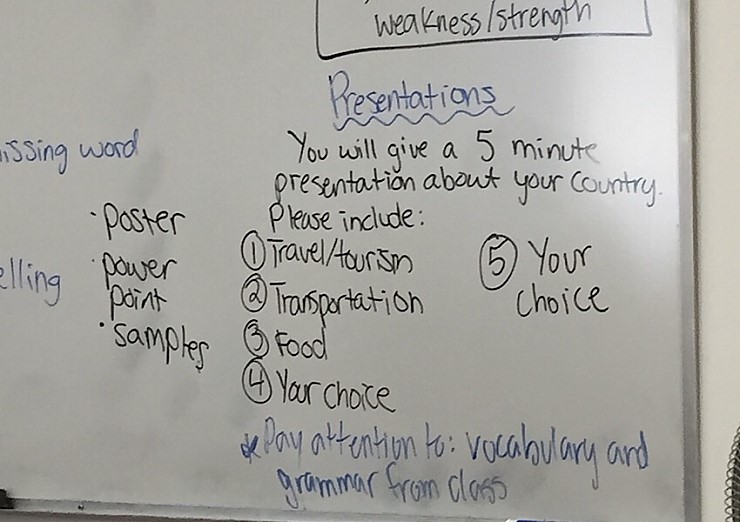 weakness/strength
Presentations
You will give a 5 minute
presentation about your country.
Please include:
① Travel/tourism
② Transportation
③ Food
④ Your choice
⑤ Your
choice
* Pay attention to: vocabulary and
grammar from class
word
• poster
• power
point
• samples